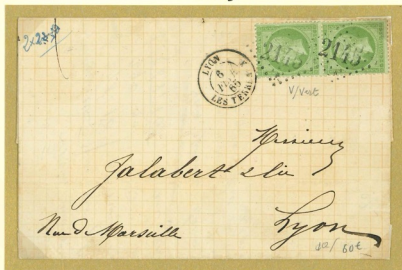 2145 2145
LYON
6
65
LES TERREAUX
V/Vert
Messieurs
Jalabert & Cie
Rue de Marseille
Lyon
60€